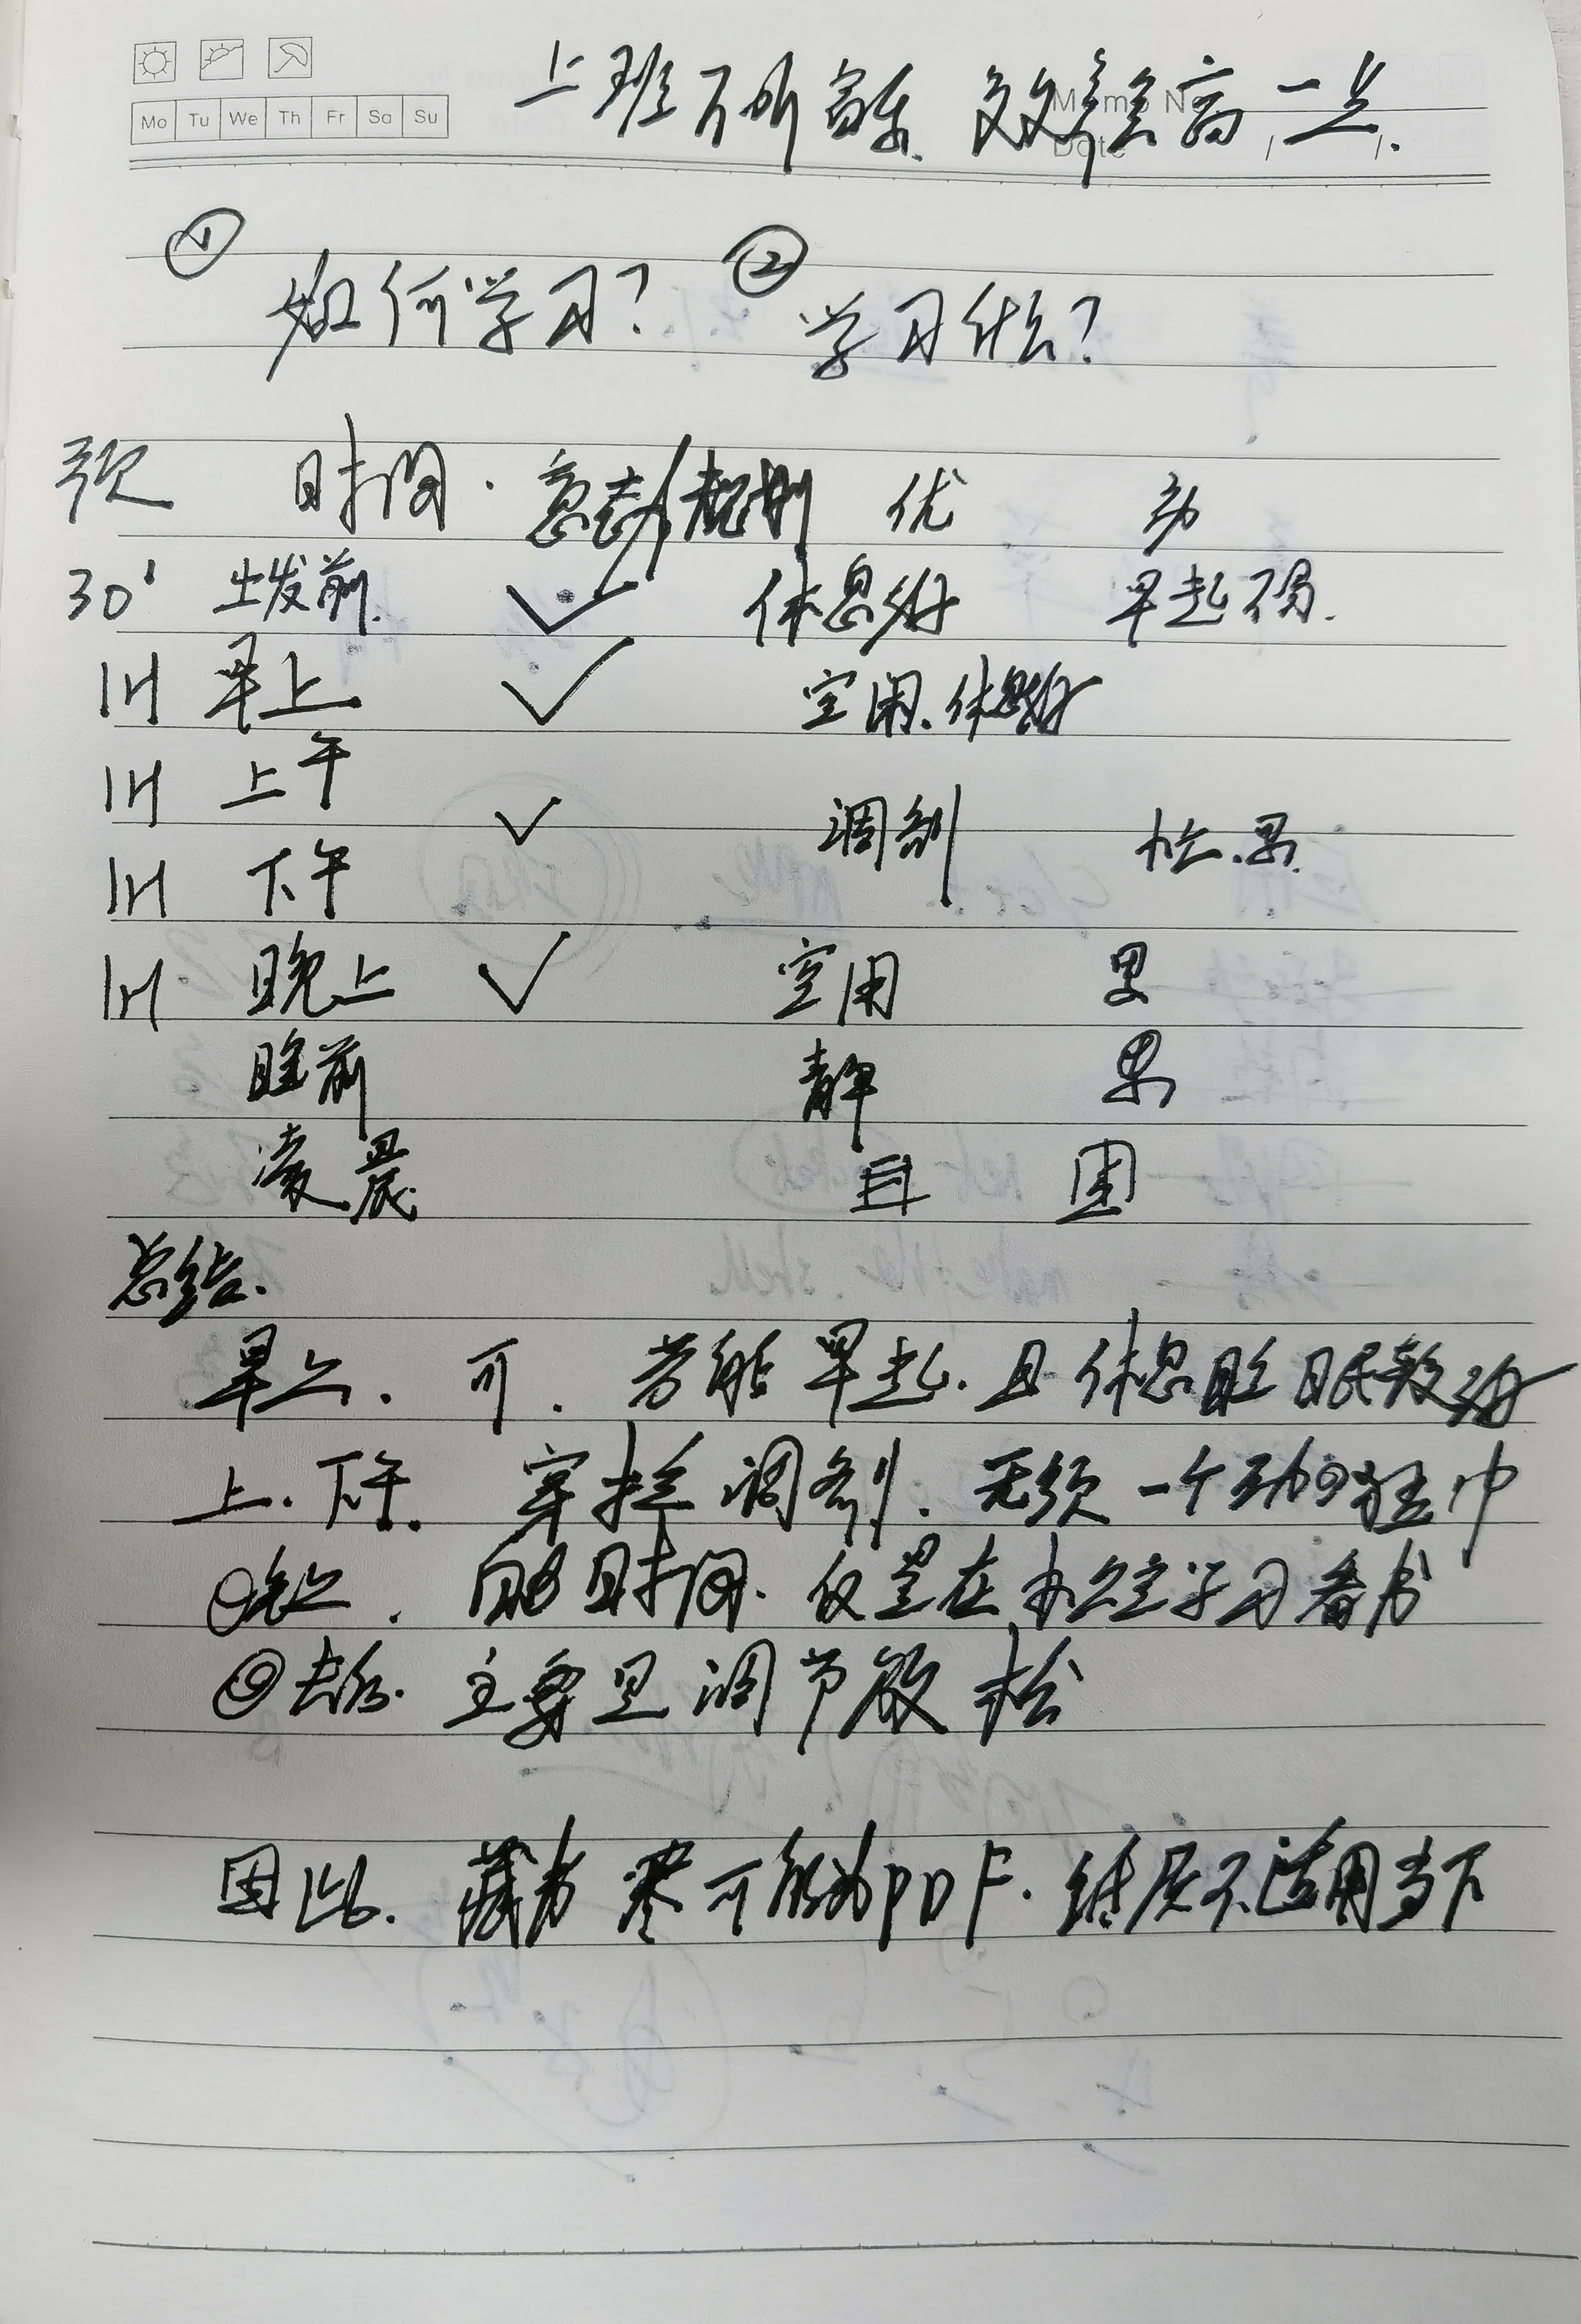 Mo Tu We Th Fr Sa Su
Memo No.
Date / /
上班 效率高一点.
① 如何学习? ② 学习什么?
预 时间. 意动/规划 优 劣
30' 出发前. ✓ 休息好 早起不易.
1H 早上 ✓ 空闲.休息好
1H 上午
✓ 调剂 忙.累.
1H 下午
1H 晚上 ✓ 空闲 累
睡前 静 累
凌晨 困
总结.
早上. 可. 若能早起.且休息睡眠较好
上.下午. 穿插调剂.无须一个劲的狂冲
晚上. 自由时间.仅是在办公室学习看书
主要是调节放松
因此. 藏书尽可能为PDF.纸质不适用当下